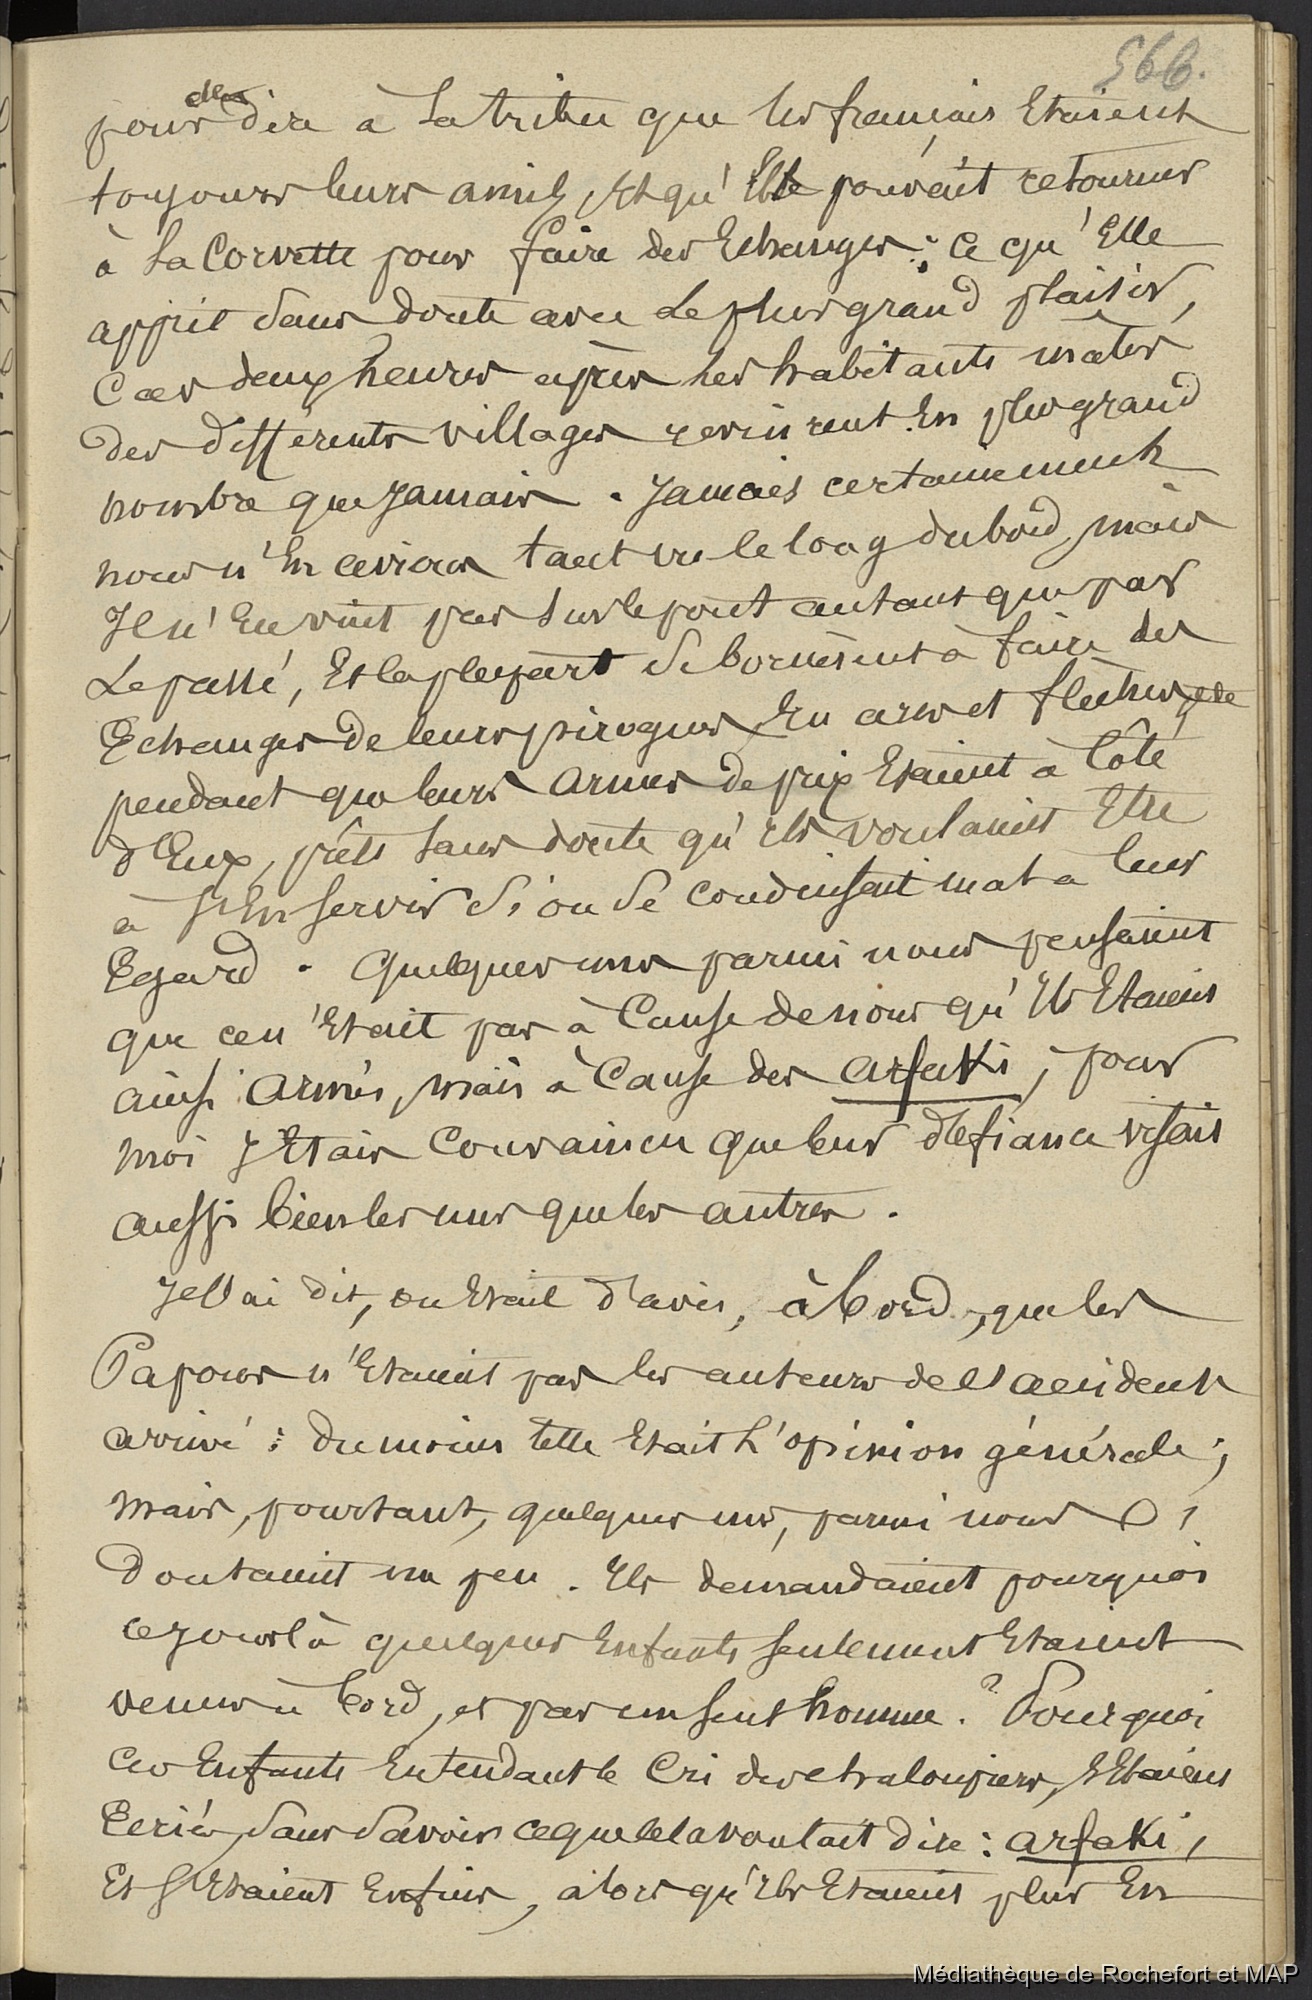 566.
pour dire à la tribu que les français Etaient
toujours leurs amis, et qu'Elle pouvait retourner
à la Corvette pour faire des Echanges ; ce qu'Elle
apprit sans doute avec le plus grand plaisir,
Car deux heures après les habitants mâles
des différents villages revinrent En plus grand
nombre que jamais . Jamais certainement
nous n'En avions tant vu le long du bord, mais
Il n'En vint pas sur le pont autant que par
Le passé, Et la plupart se bornèrent à faire des
Echanges de leurs pirogues, En arcs et flèches,
pendant que leurs armes de prix Etaient à Côté
d'Eux, prêts sans doute qu'ils voulaient Etre
à s'En servir si on se conduisait mal à leur
Egard . Quelques uns parmi nous pensaient
que ce n'Etait pas à Cause de nous qu'Ils Etaient
ainsi armés, mais à Cause des arfakis, pour
moi J'Etais Convaincu que leur défiance visait
aussi bien les uns que les autres .
Je l'ai dit, on Etait d'avis, à bord, que les
Papous n'Etaient pas les auteurs de l'accident
arrivé : du moins telle Etait L'opinion générale ;
Mais, pourtant, quelques uns, parmi nous
Doutaient un peu . Ils demandaient pourquoi
ce jour là quelques Enfants seulement Etaient
venus à bord, et pas un seul homme ? Pourquoi
Ces Enfants Entendant le Cri des chaloupiers, s'Etaient
Ecriés, sans savoir ce que cela voulait dire : arfaki,
Et s'Etaient Enfuis, alors qu'Ils Etaient plus En
Médiathèque de Rochefort et MAP